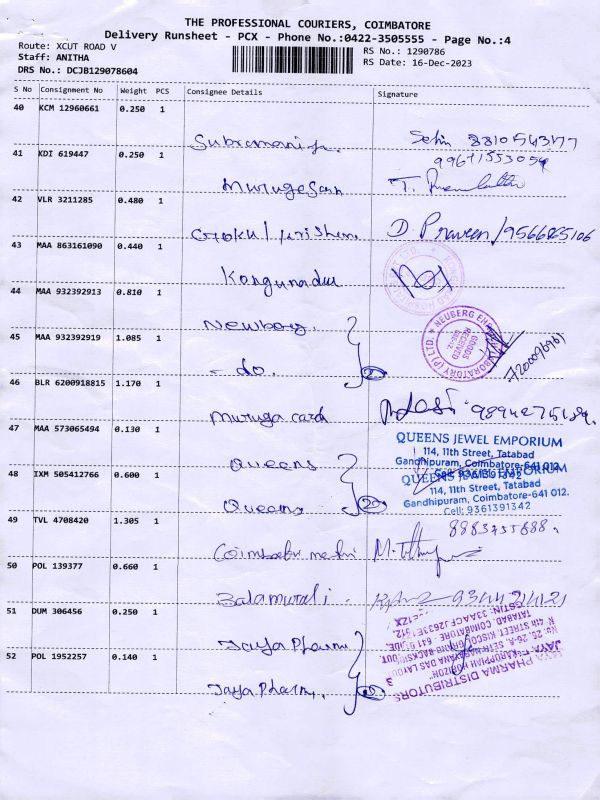 THE PROFESSIONAL COURIERS, COIMBATORE
Delivery Runsheet - PCX - Phone No.:0422-3505555 - Page No.:4
Route: XCUT ROAD V
RS No.: 1290786
Staff: ANITHA
RS Date: 16-Dec-2023
DRS No.: DCJB129078604
S No Consignment No Weight PCS Consignee Details Signature
40 KCM 12960661 0.250 1
41 KDI 619447 0.250 1
Murugesan
42 VLR 3211285 0.480 1
D. Praveen
43 MAA 863161090 0.440 1
Kongunadu
44 MAA 932392913 0.810 1
Newberg.
45 MAA 932392919 1.085 1
- do.
46 BLR 6200918815 1.170 1
Muruga card
47 MAA 573065494 0.130 1
QUEENS JEWEL EMPORIUM
114, 11th Street, Tatabad
Gandhipuram, Coimbatore-641 012.
Cell: 9361391342
Queens
48 IXM 505412766 0.600 1
QUEENS JEWEL EMPORIUM
114, 11th Street, Tatabad
Gandhipuram, Coimbatore-641 012.
Cell: 9361391342
Queens
49 TVL 4708420 1.305 1
50 POL 139377 0.660 1
Balamurali.
51 DUM 306456 0.250 1
Jaya Pharma
52 POL 1952257 0.140 1
Jaya Pharma.
JAYA PHARMA DISTRIBUTORS